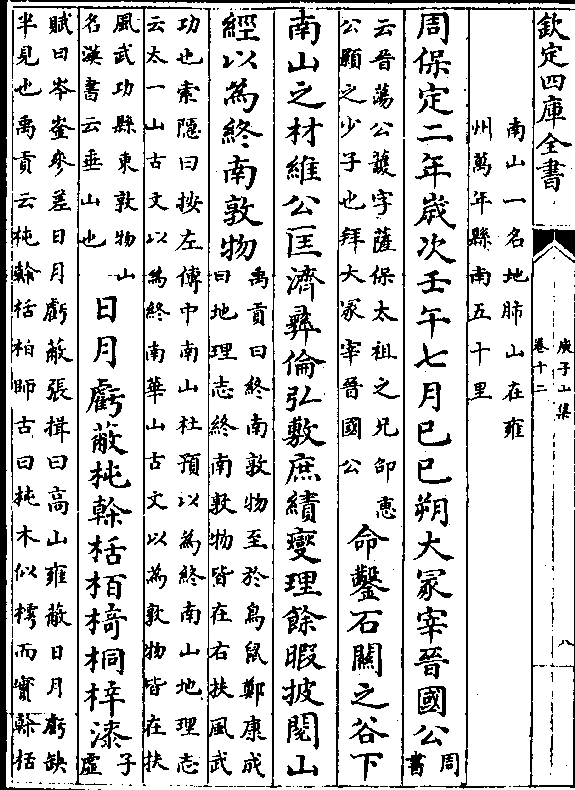 欽定四庫全書
庾子山集
卷十二
八
南山一名地肺山在雍
州萬年縣南五十里
周保定二年歲次壬午七月己巳朔大冢宰晉國公
周
書
云晉蕩公護字薩保太祖之兄邵惠
公顥之少子也拜大冢宰晉國公
命鑿石關之谷下
南山之材維公匡濟彝倫弘敷庶績燮理餘暇披閱山
經以為終南敦物
禹貢曰終南敦物至於鳥鼠鄭康成
曰地理志終南敦物皆在右扶風武
功也索隱曰按左傳中南山杜預以為終南山地理志
云太一山古文以為終南華山古文以為敦物皆在扶
風武功縣東敦物山
名漢書云垂山也
日月虧蔽杶榦栝栢椅桐梓漆
子
虛
賦曰岑崟參差日月虧蔽張揖曰高山雍蔽日月虧缺
半見也禹貢云杶榦栝柏師古曰杶木似樗而實榦栝